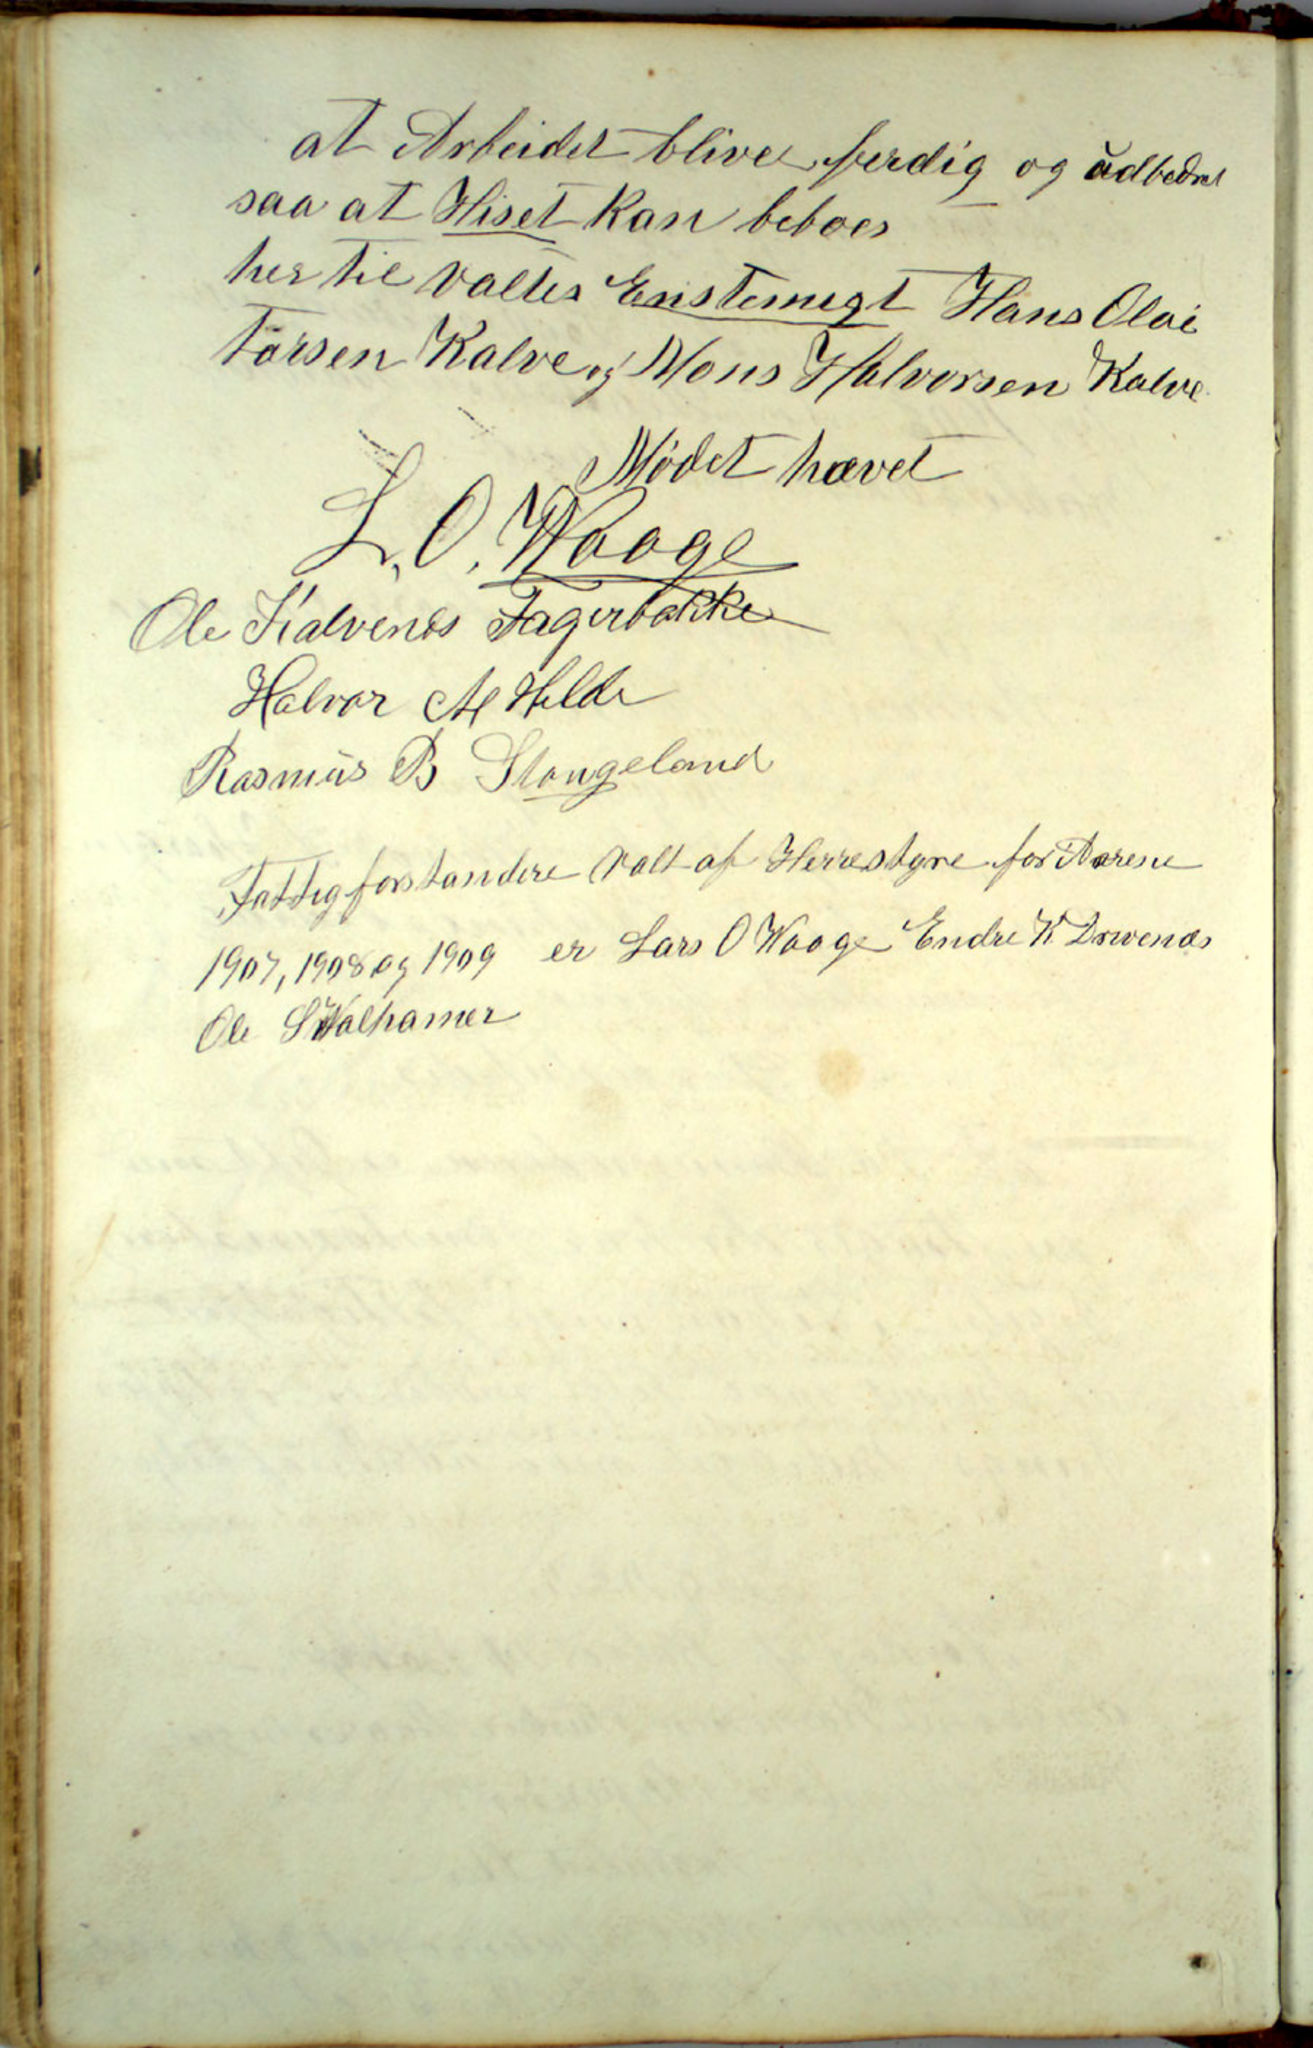 at Arbeidet bliver ferdig og udbedret
saa at Hiset kan beboes
her til valtes Enstemigt Hans Oloi
Torsen Kalve og Mons Halvorsen Kalve
Mödet hævet
L. O. Waage
Ole Kalvenes Fagerbakke
Halvor M Helde
Rasmus B Stangeland
Fattigforstandere valt af Herrestyre for Aarene
1907, 1908 og 1909 er Lars O Waage Endre K.
Ole S Valhamer